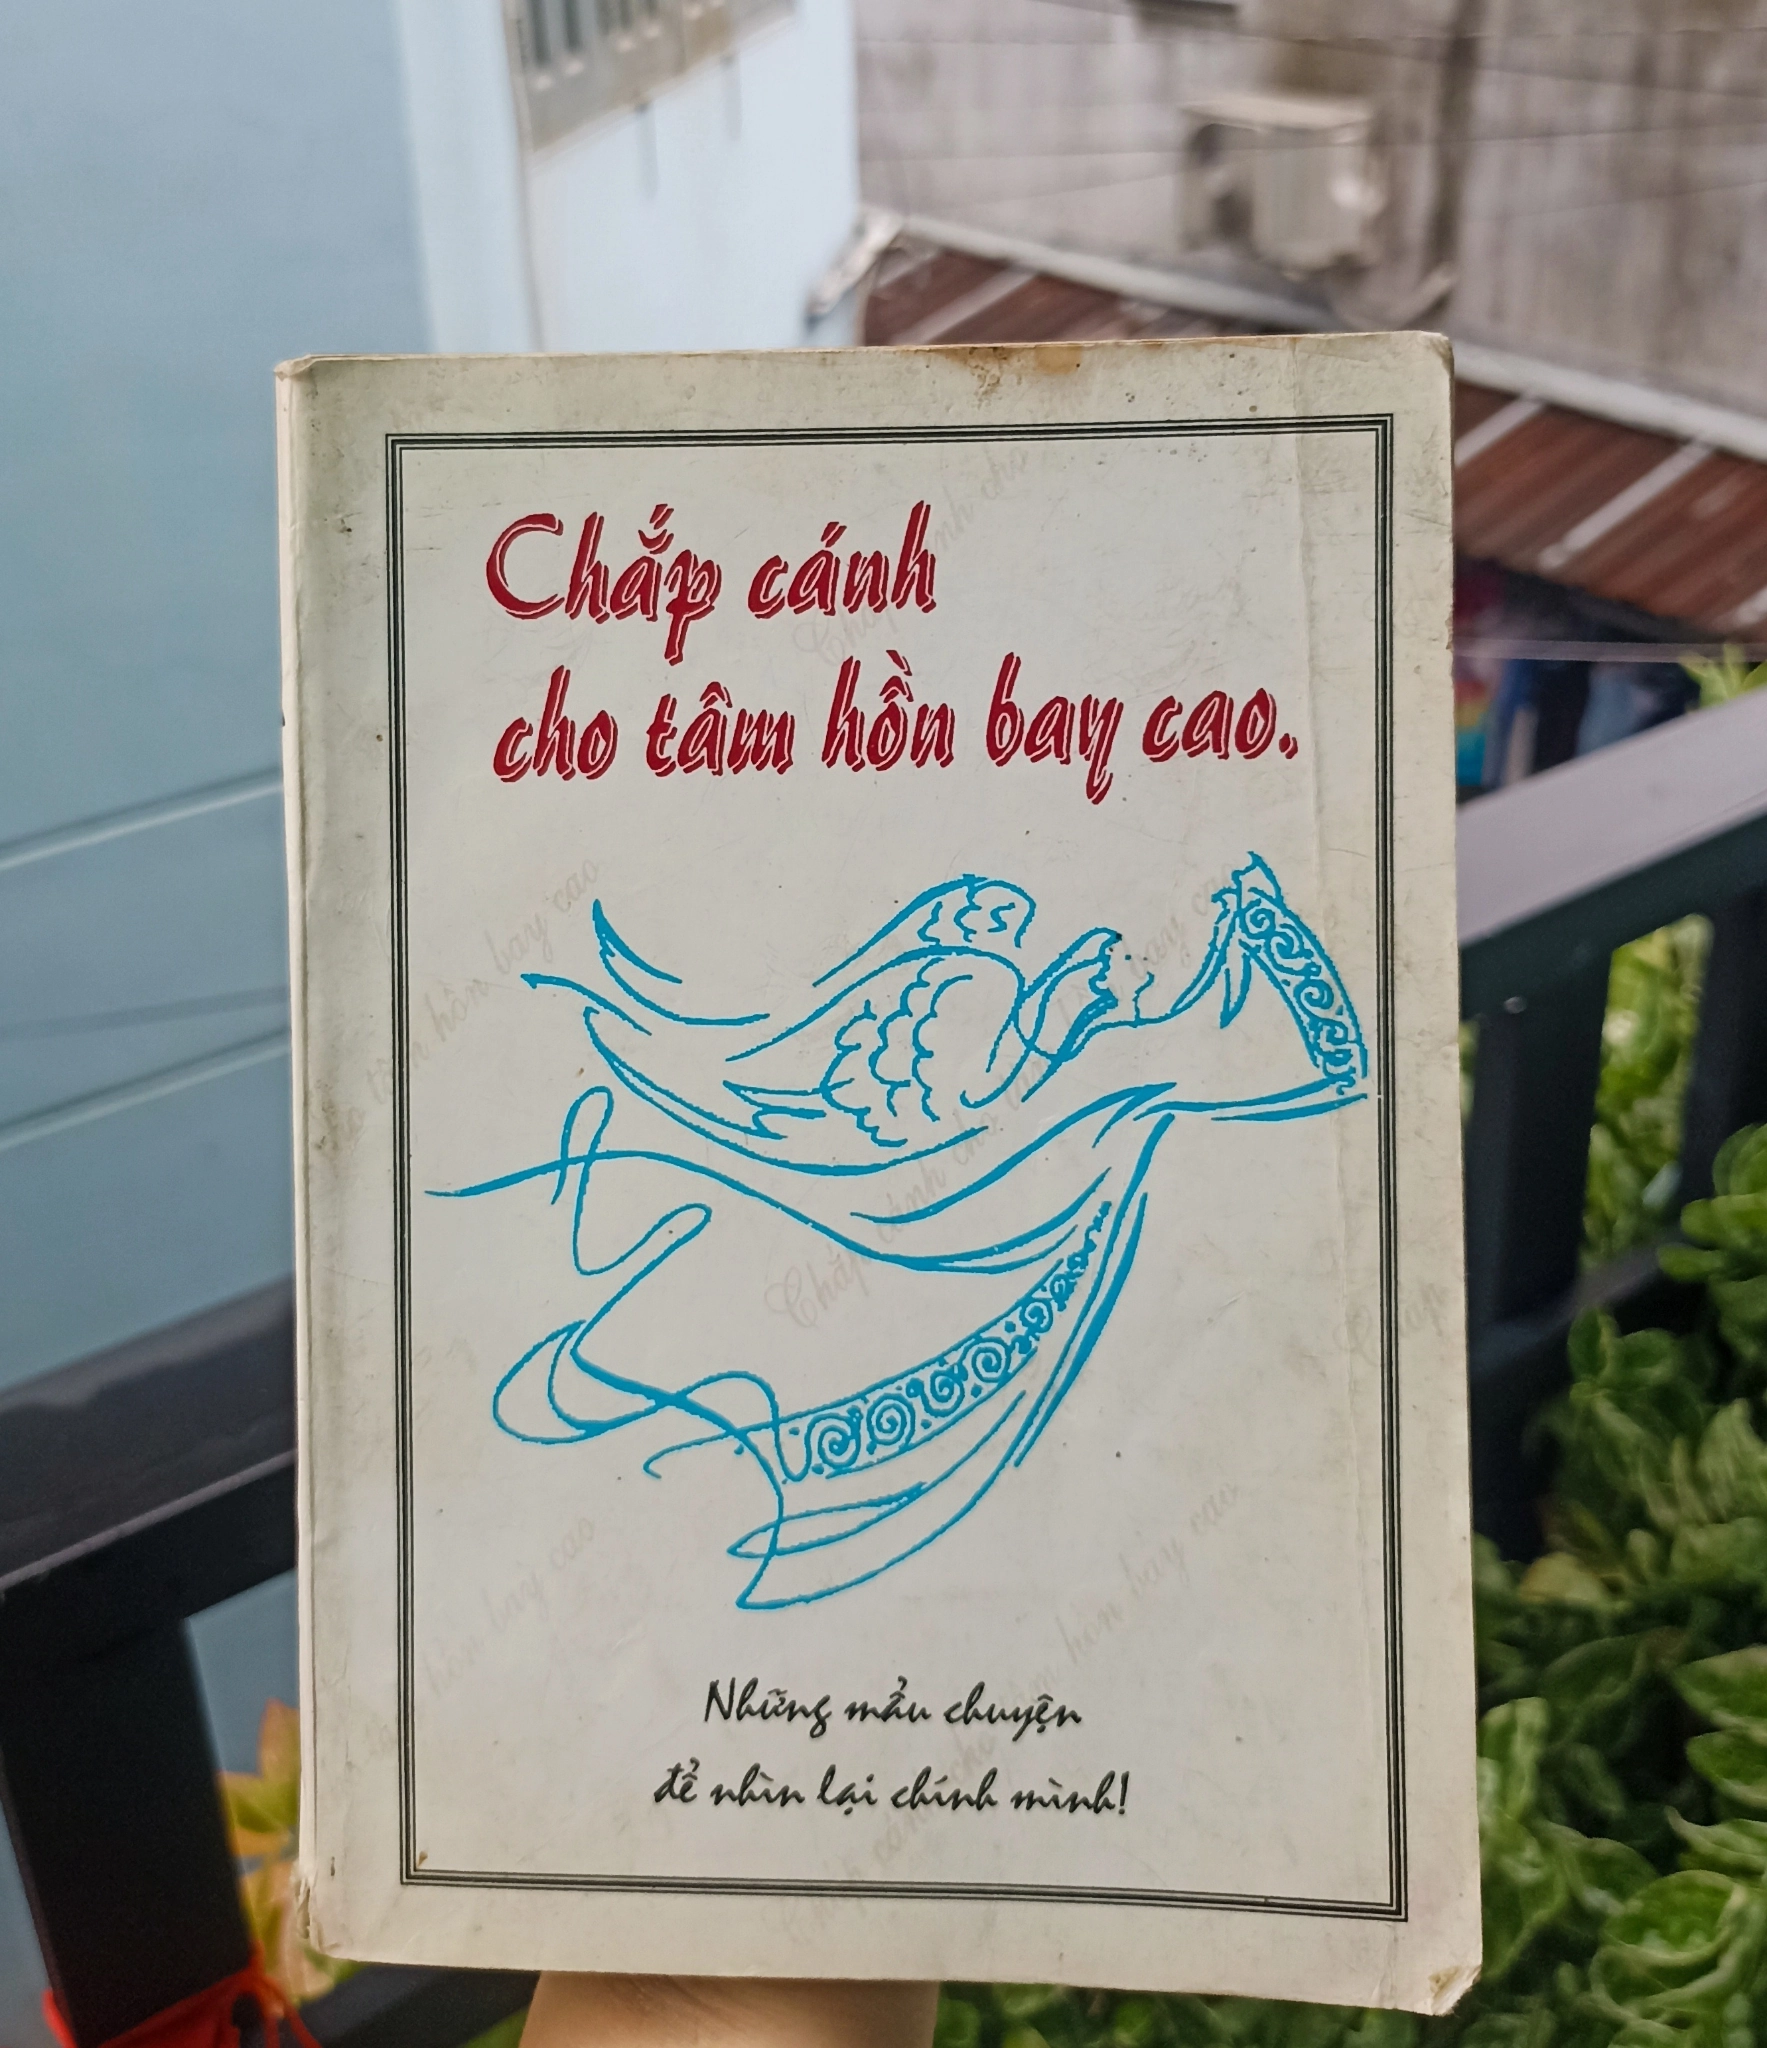 Chắp cánh
cho tâm hồn bay cao.
Những mẩu chuyện
để nhìn lại chính mình!